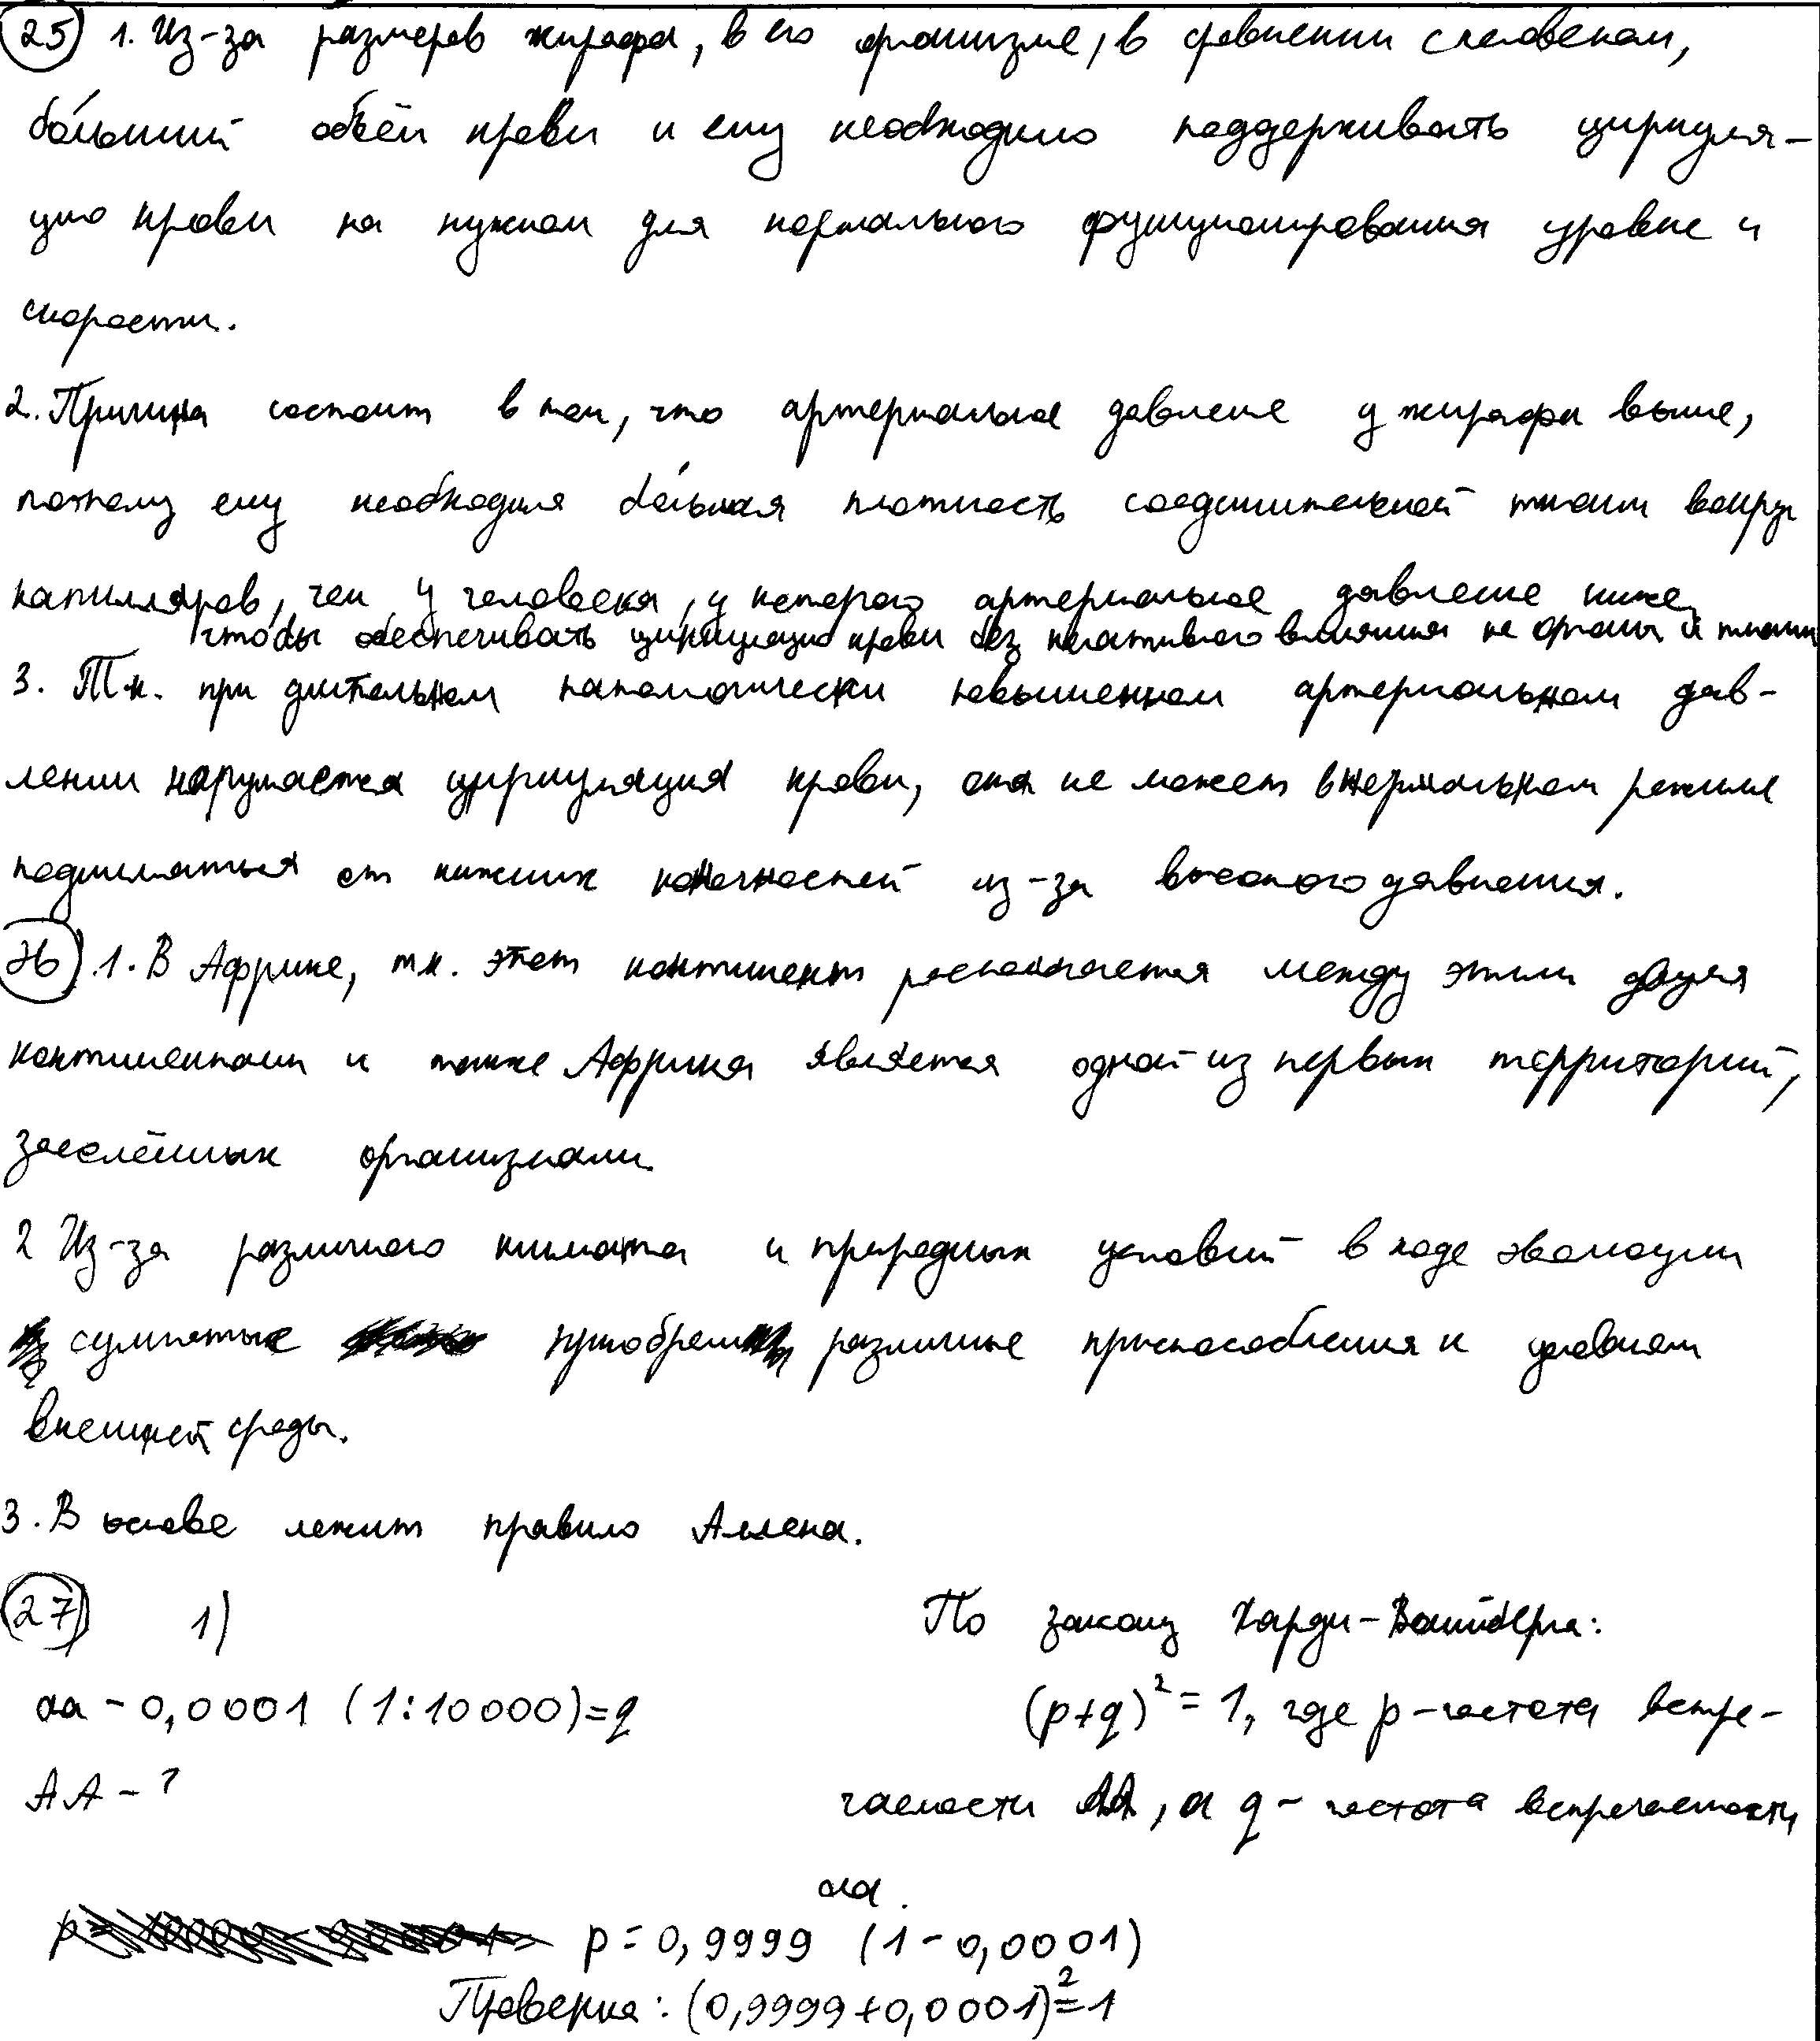 25) 1. Из-за размеров жирафа, в его организме, в сравнении с человеком,
бо́льший объём крови и ему необходимо поддерживать циркуля-
цию крови на нужном для нормального функционирования уровне и
скорости.
2. Причина состоит в том, что артериальное давление у жирафа выше,
поэтому ему необходима бо́льшая плотность соединительной ткани вокруг
капилляров, чем у человека, у которого артериальное давление ниже,
чтобы обеспечивать циркуляцию крови без негативного влияния на органы и ткани
3. Т.к. при длительном патологически повышенном артериальном дав-
лении нарушается циркуляция крови, она не может в нормальном режиме
подниматься от нижних конечностей из-за высокого давления.
26) 1. В Африке, т.к. этот континент располагается между этими двумя
континентами и также Африка является одной из первых территорий,
заселённых организмами.
2 Из-за различного климата и природных условий в ходе эволюции
сумчатые приобрели различные приспособления к условиям
внешней среды.
3. В основе лежит правило Аллена.
27) 1) По закону Харди-Вайнберга:
аа - 0,0001 (1:10000)=q (p+q)²=1, где p-частота встре-
АА - ? чаемости АА, а q - частота встречаемости
аа.
p=0,9999 (1-0,0001)
Проверка: (0,9999+0,0001)²=1